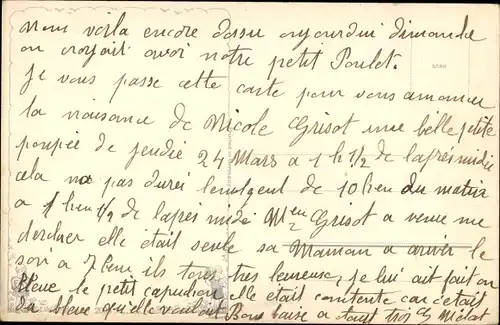 nous voila encore dassu aujourdui dimanche
on croyait avoi notre petit Poulet.
je vous passe cette carte pour vous anoncer
la naisance de Nicole Grisot une belle petite
poupée de jeudie 24 Mars a 1 h 1/2 de laprés midie
cela na pas durei lentgent de 10 heu du matin
a 1 heu 1/2 de laprés midi Men Grisot a venue me
chercher elle était seule sa Maman a ariver le
soir a 7 heure ils tous tres heureuse, je lui ait fait on
bleue le petit capuchon elle etait contente car cetait
du bleue qu'elle voulait Bons baise a tous